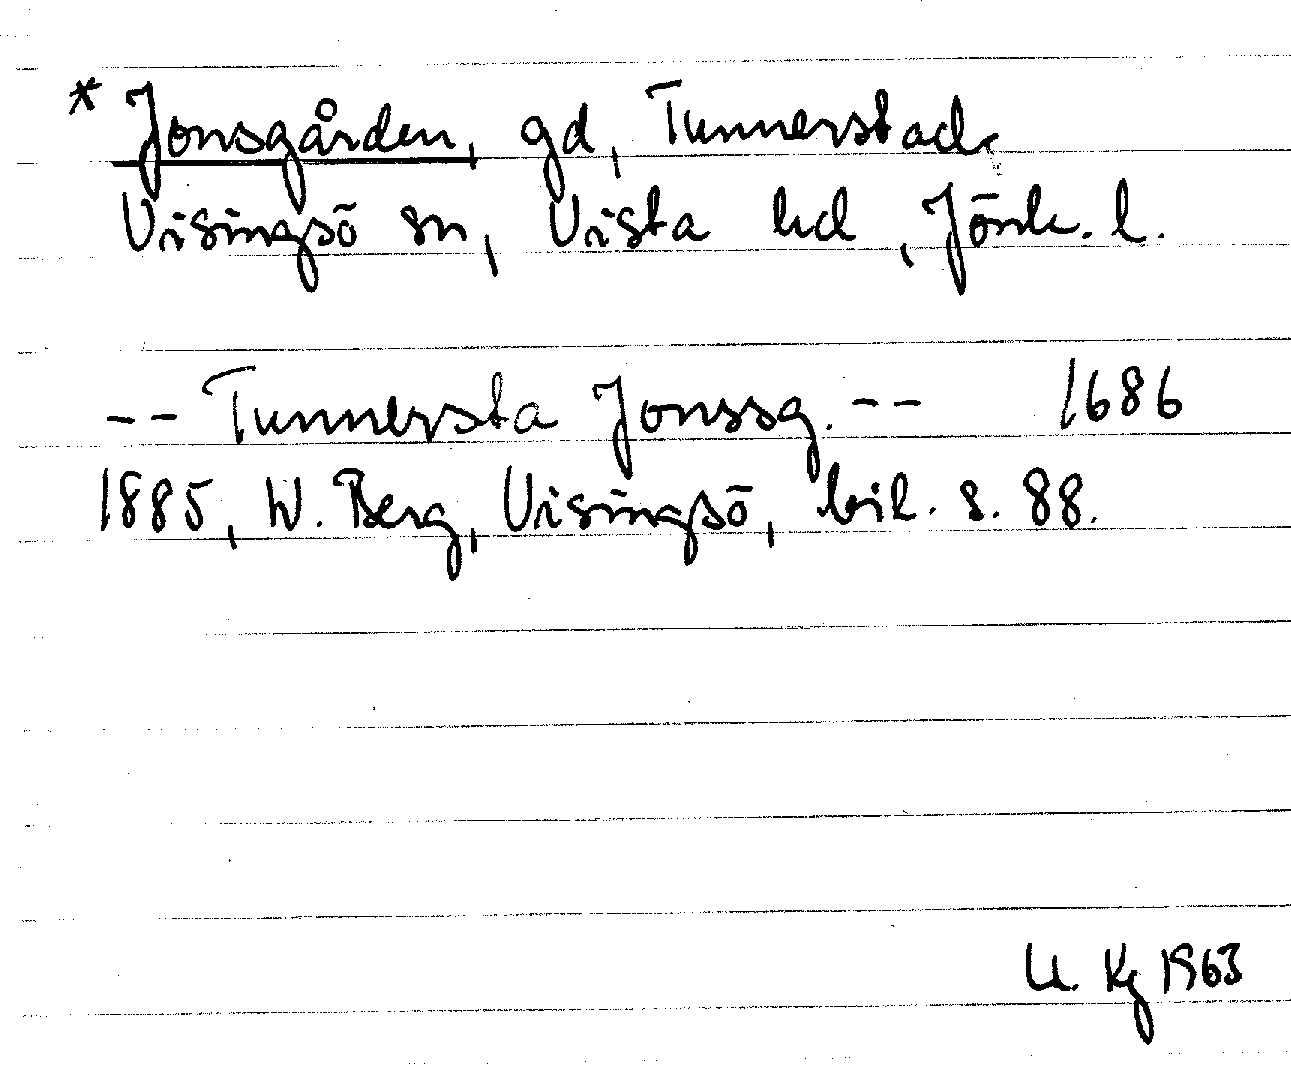 * Jonsgården, gd, Tunnerstad,
Visingsö sn, Vista hd, Jönk. l.
-- Tunnersta Jonssg. -- 1686
1885, W. Berg, Visingsö, bil. s. 88.
U. Kg 1963